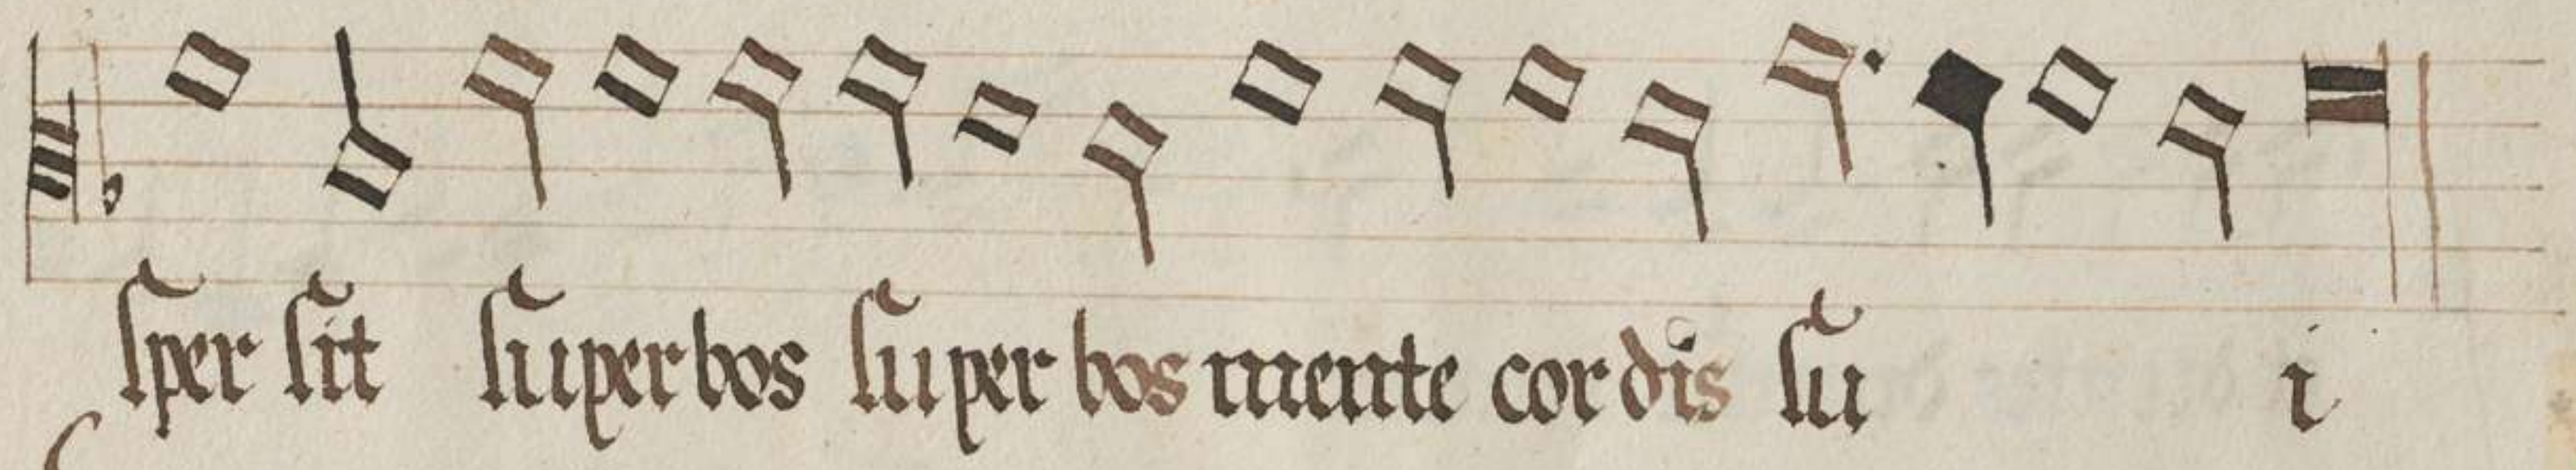 sper sit superbos superbos mente cordis su i